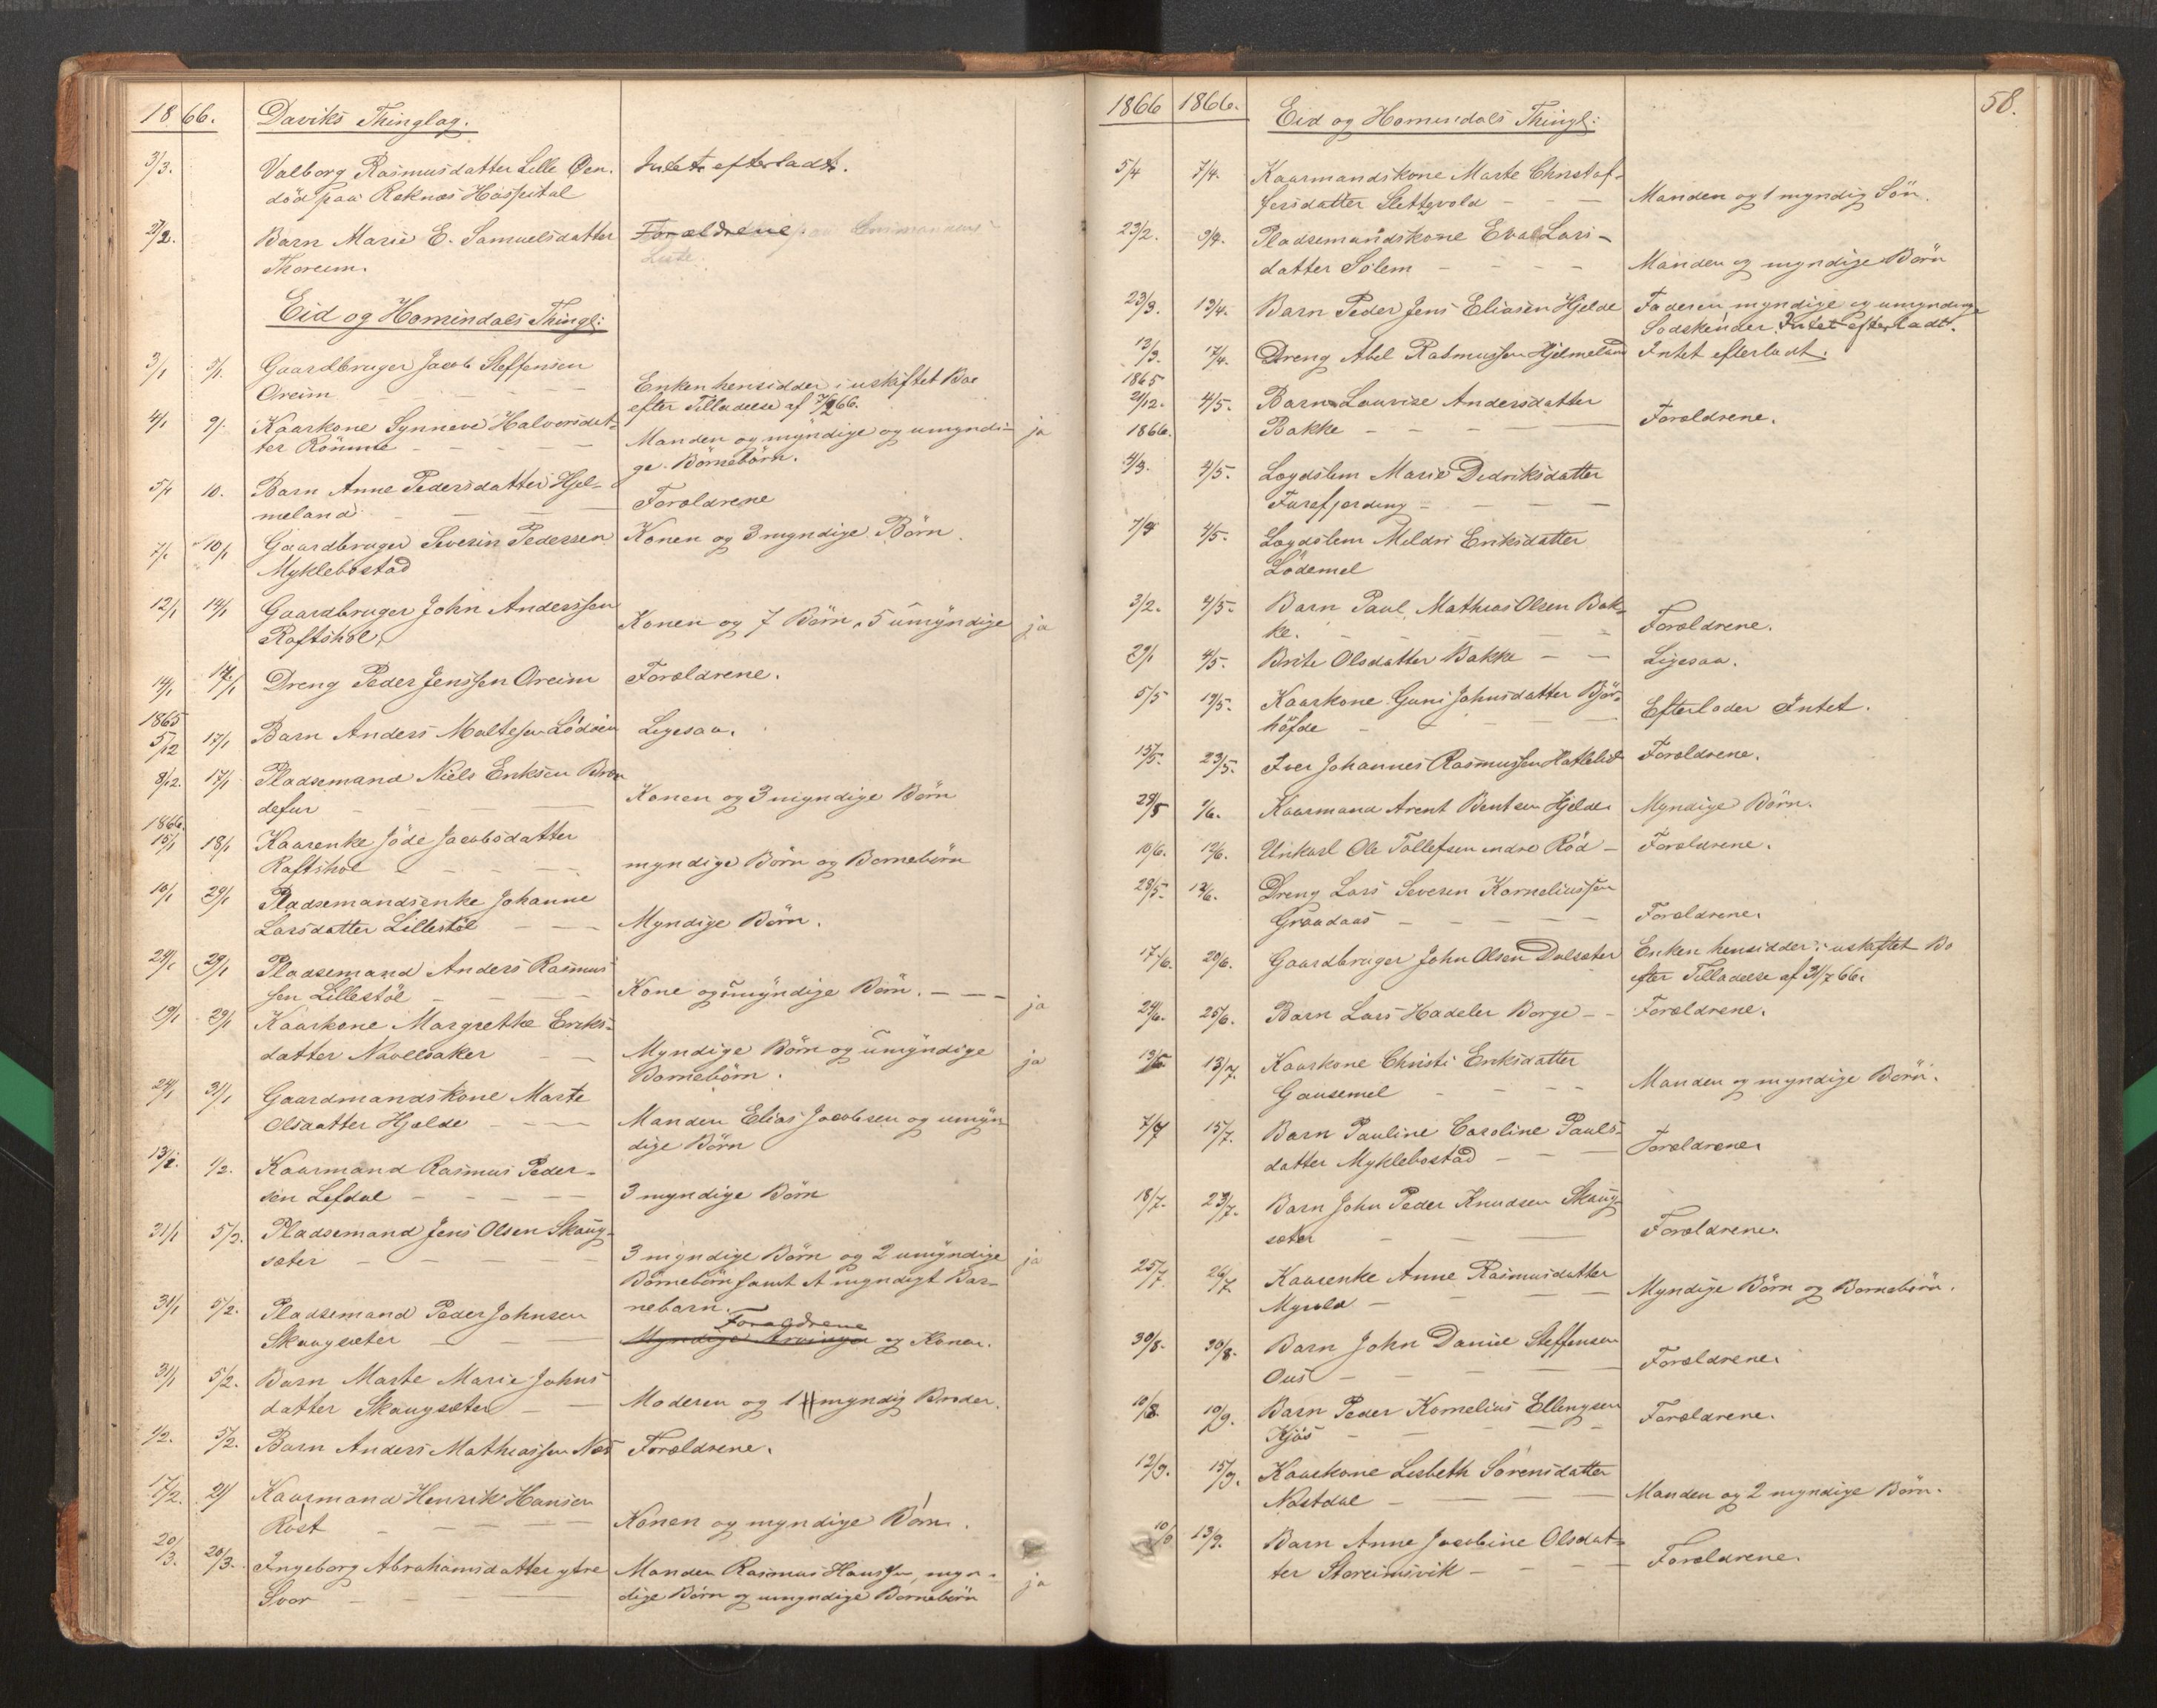 1866. Daviks Thinglag.
3/3. Valborg Rasmusdatter Lille Øen. Intet efterladt.
död paa Reknæs Hospital
2/2. Barn Marie E. Samuelsdatter Forældrene.
Thoreim. Liste.
Eid og Homindals Thingl:
3/1 5/1. Gaardbruger Jacob Steffensen
Øreim - - - Enken hensidder i uskiftet Boe
efter Tilladelse af 7/2 66.
4/1 9/. Kaarkone Synneve Halvorsdat-
ter Römme - - - Manden og myndige og umyndi- ja
ge Börnebörn.
5/1 10. Barn Anne Pedersdatter Hjel-
meland - - - Forældrene
7/1 10/1 Gaardbruger Severin Pedersen Konen og 3 myndige Börn.
Myklebostad
12/1 14/1 Gaardbruger John Anderssen
Raftshol, Konen og 7 Börn, 5 umyndige ja
14/1 17/1 Dreng Peder Jenssen Øreim Forældrene.
1865
5/12 17/1 Barn Anders Maltesen Lödöen Ligesaa.
8/12. 17/1 Pladsemand Niels Eriksen Bran
defur - - Konen og 3 myndige Börn
1866.
15/1 18/1 Kaarenke Jöde Jacobsdatter
Raftshol - - - myndige Börn og Bornebörn
10/1 29/1 Pladsemandsenke Johanne
Larsdatter Lillestöl - - - Myndige Börn.
24/1 29/1 Pladsemand Anders Rasmus
sen Lillestöl - - - Kone og umyndige Börn. - - - ja
19/1 29/1 Kaarkone Margrethe Eriks-
datter Navelsaker - - Myndige Börn og umyndige ja
Bornebörn.
24/1 31/1 Gaardmandskone Marte
Olsdatter Hjelde - - - Manden Elias Jacobsen og umyn
dige Börn
13/1. 1/2. Kaarmand Rasmus Peder-
sen Lefdal - - - 3 myndige Börn
31/1 5/2. Pladsemand Jens Olsen Skaug-
sæter - - - 3 myndige Börn og 2 umyndige ja
Börnebörn samt et myndigt Bar-
nebarn.
31/1 5/2. Pladsemand Peder Johnsen Forældrene
Skaugsæter - - Myndige Arvinger og Konen.
31/1 5/2. Barn Marte Marie Johns
datter Skaugsæter - - Moderen og 1 myndig Broder.
1/2. 5/2. Barn Anders Mathiassen Nos Forældrene.
17/2. 21/ Kaarmand Henrik Hansen
Röst - - - Konen og myndige Börn.
20/3. 20/3. Ingeborg Abrahamsdatter ytre Manden Rasmus Hanssen, myn-
Svor - - - dige Börn og umyndige Bornebörn ja
1866 1866. Eid og Homindals Thingl: 58.
5/4 7/4. Kaarmandskone Marte Christof-
fersdatter Slettevold - - - Manden og 1 myndig Sön.
23/2. 9/4. Pladsemandskone Eva Lars-
datter Solem - - - Manden og myndige Börn
23/3. 13/4. Barn Peder Jens Eliasen Hjelde Faderen myndige og umyndige
Sodskender. Intet efterladt.
13/3. 17/4. Dreng Abel Rasmussen Hjelmeland Intet efterladt.
1865
21/12. 4/5. Barn Lovrise Andersdatter
1866. Bakke - - - Forældrene.
4/3. 4/5. Lægdslem Marie Dedriksdatter
Furefjording - - -
7/4 4/5. Lægdslem Meldri Eriksdatter
Lödemel
3/2. 4/5. Barn Paul Mathias Olsen Bak-
ke. - - - Forældrene.
29/1 4/5. Brite Olsdatter Bakke - - Ligesaa.
5/5 19/5. Kaarkone Guni Johnsdatter Björ-
höfde - - - Efterlader Intet.
15/5. 23/5. Iver Johannes Rasmussen Hatlelid Forældrene.
29/5 1/6. Kaarmand Arent Bentsen Hjelde Myndige Börn.
10/6. 12/6. Unkarl Ole Tollefsen indre Röd - Forældrene.
28/5. 12/6. Dreng Lars Severin Korneliussen
Graadaas - - - Forældrene
17/6. 20/6. Gaardbruger John Olsen Dalsæter Enken hensidder i uskiftet Bo
efter Tilladelse af 31/7 66.
24/6. 25/6. Barn Lars Hadeler Borge - - Forældrene.
13/6 13/7. Kaarkone Christi Eriksdatter
Gausemel - - - Manden og myndige Börn.
7/7 15/7. Barn Pauline Caroline Pauls-
datter Myklebostad - - - Forældrene
18/7. 23/7. Barn John Peder Knudsen Skaug-
sæter - - Forældrene.
25/7. 26/7. Kaarenke Anne Rasmusdatter
Myrold - - - Myndige Börn og Bornebörn.
30/8. 30/8. Barn John Daniel Steffensen
Ous - - - Forældrene.
10/8. 10/9. Barn Peder Kornelius Ellingsen
Kjös - - - Forældrene.
12/9. 15/9. Kaarkone Lisbeth Sörensdatter
Nöstdal - - - Manden og 2 myndige Börn.
10/9 13/9. Barn Anne Jacobine Olsdat-
ter Storeimsvik - - - Forældrene.